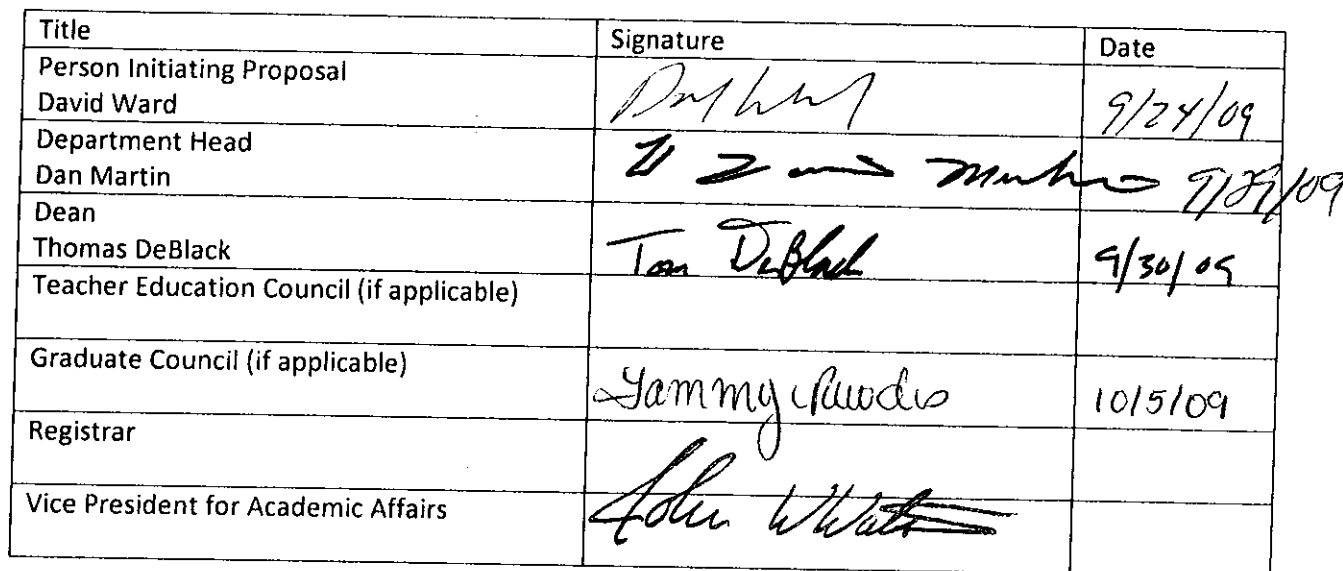 Title Signature Date
Person Initiating Proposal
David Ward 9/24/09
Department Head
Dan Martin 9/29/09
Dean
Thomas DeBlack Tom DeBlack 9/30/09
Teacher Education Council (if applicable)
Graduate Council (if applicable)
Tammy Rhodes 10/5/09
Registrar
Vice President for Academic Affairs John W Watson